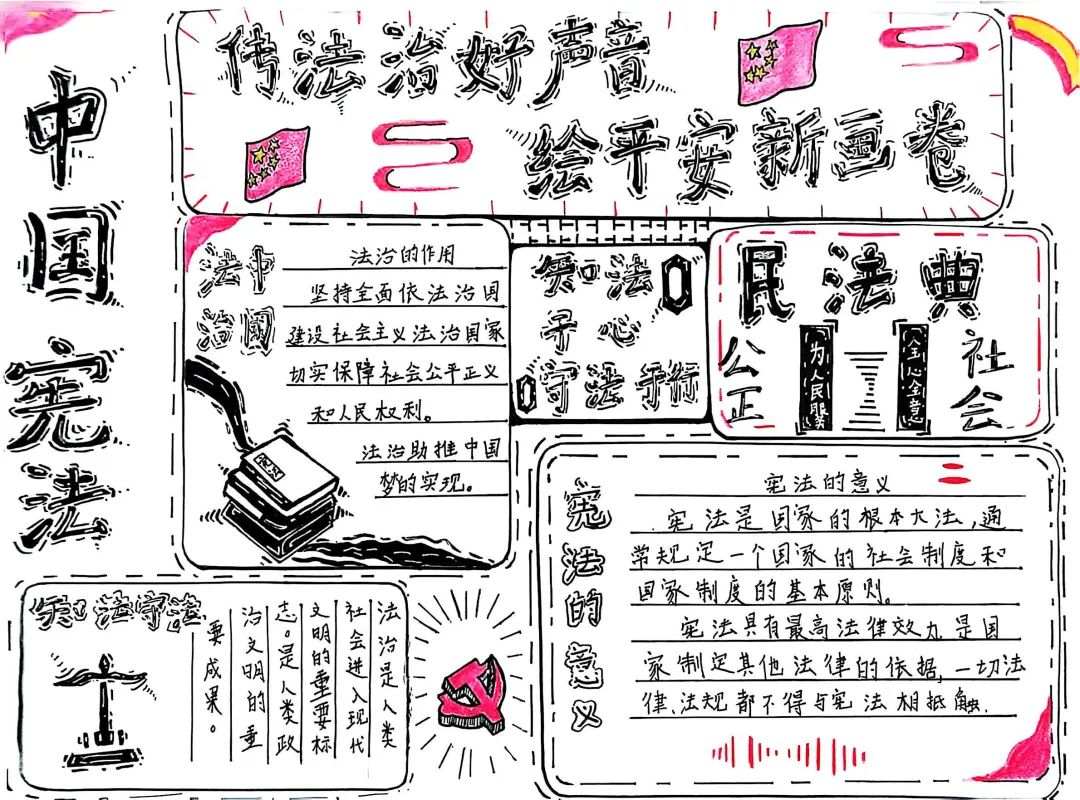 中国宪法
传法治好声音
绘平安新画卷
法治
中国
法治的作用
坚持全面依法治国
建设社会主义法治国家
切实保障社会公平正义
和人民权利。
法治助推中国
梦的实现。
知法
于心
守法于行
民法典
公正
为人民服
全心全意
社会
宪法的意义
宪法的意义
宪法是国家的根本大法,通
常规定一个国家的社会制度和
国家制度的基本原则。
宪法具有最高法律效力是国
家制定其他法律的依据,一切法
律、法规都不得与宪法相抵触.
知法守法
法治是人类
社会进入现代
文明的重要标
志。是人类政
治文明的重
要成果。